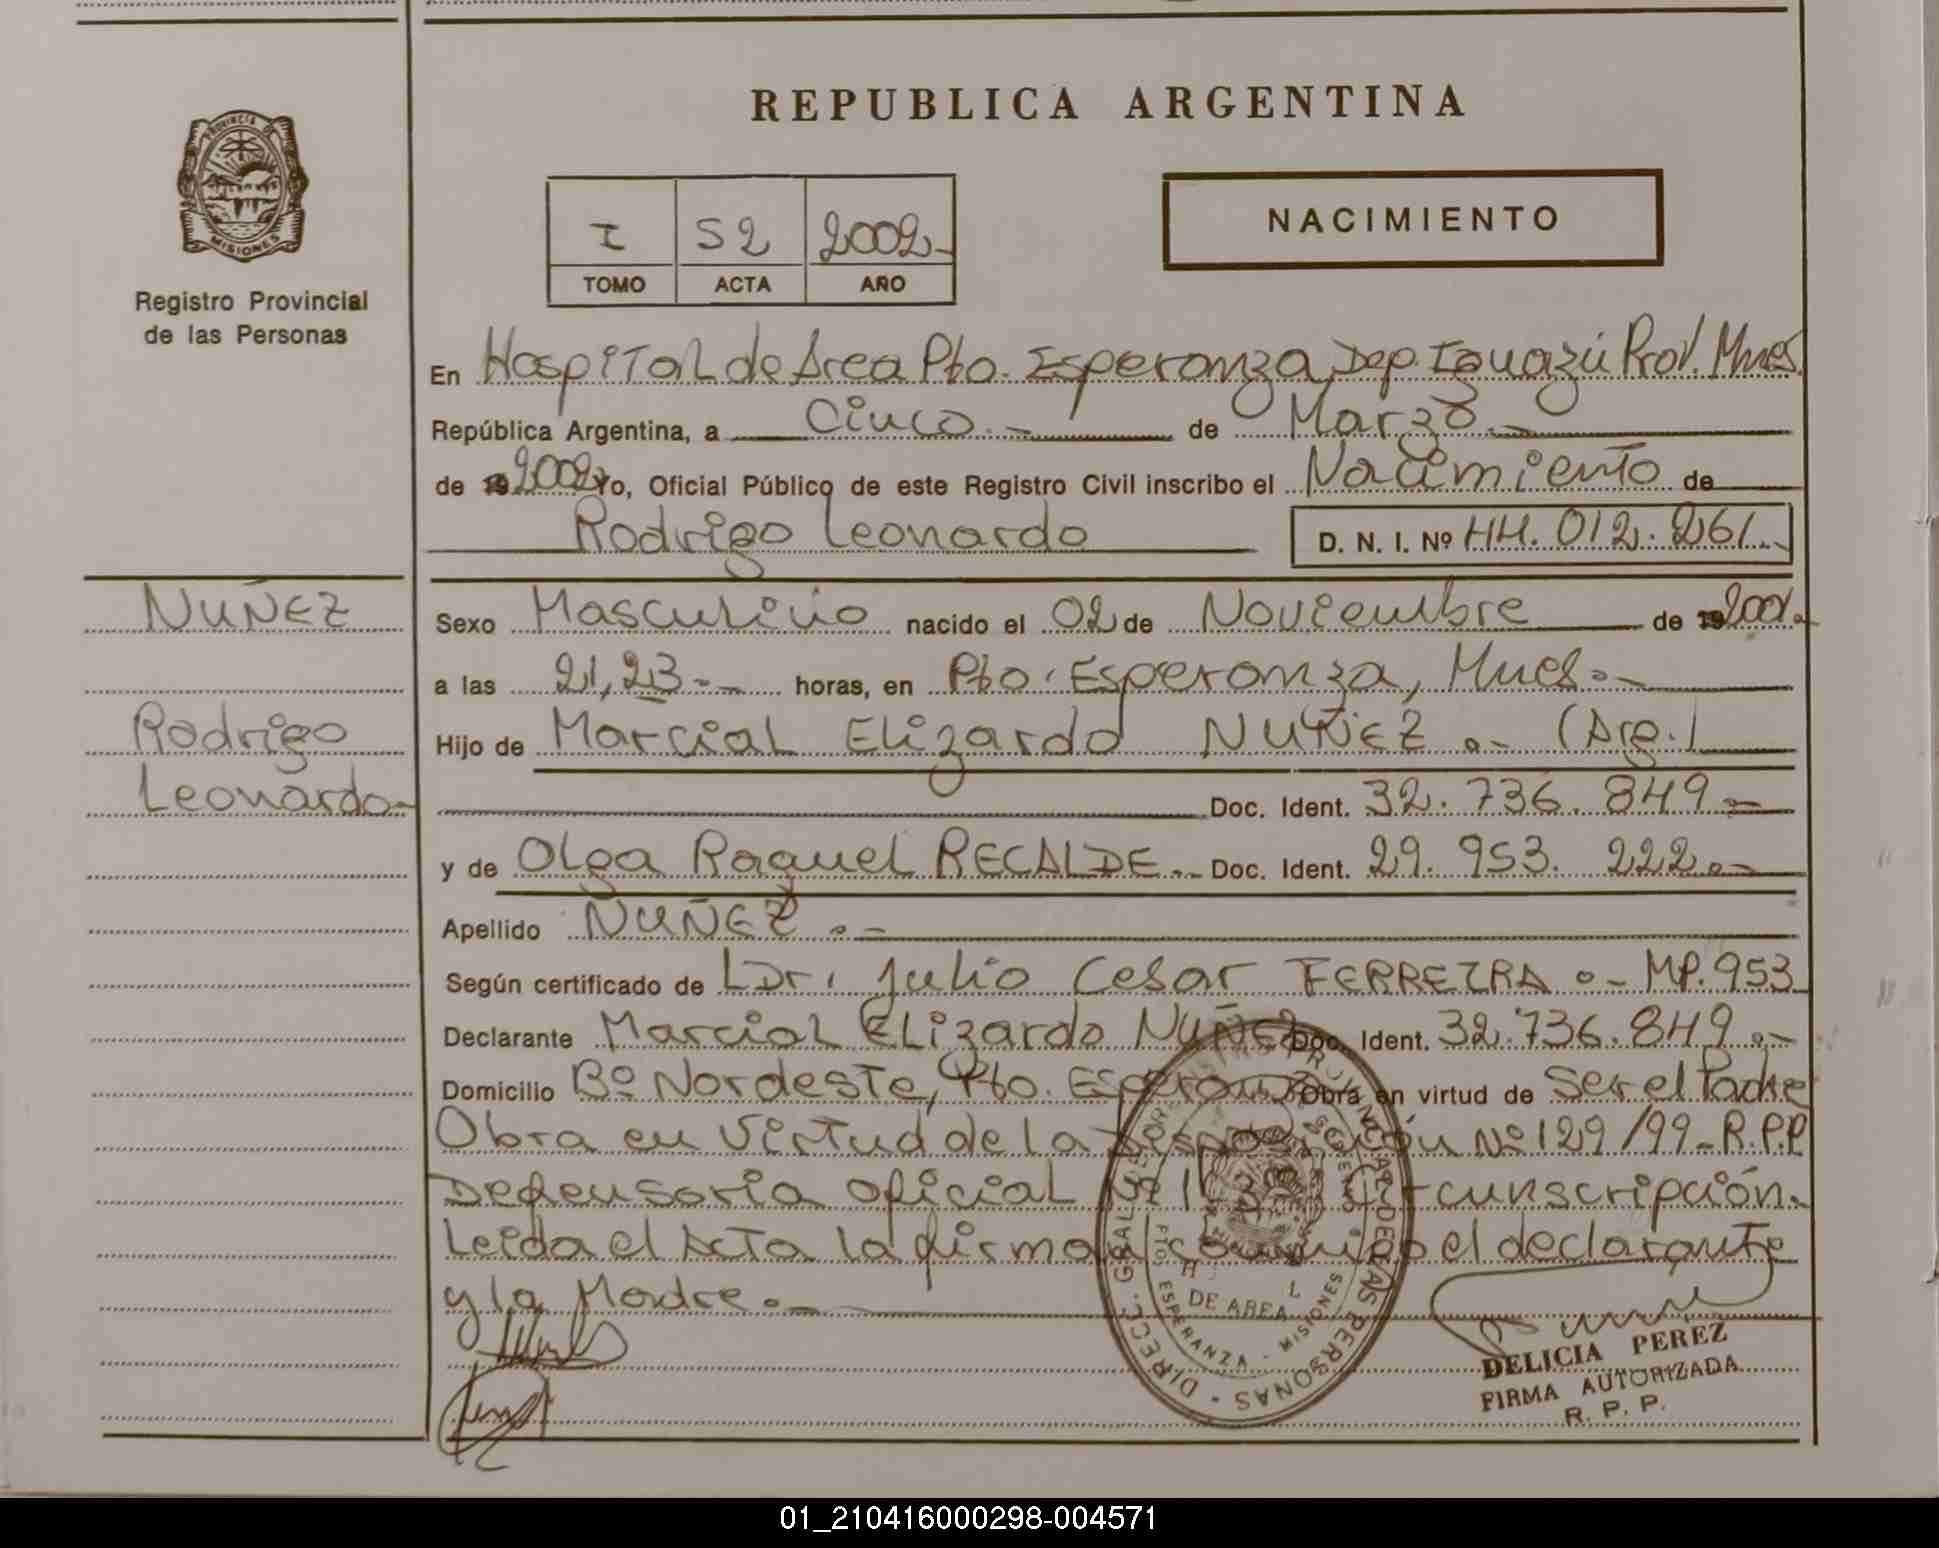 REPUBLICA ARGENTINA
PROVINCIA DE
MISIONES
Registro Provincial
de las Personas
I 52 2002-
TOMO ACTA AÑO
NACIMIENTO
En Hospital de Area Pto. Esperanza, Dep. Iguazú Prov. Mnes.
República Argentina, a Cinco.- de Marzo.-
de 19 2002 Yo, Oficial Público de este Registro Civil inscribo el Nacimiento de
Rodrigo Leonardo D. N. I. Nº 44.012.261.-
NUÑEZ
Rodrigo
Leonardo-
Sexo Masculino nacido el 02 de Noviembre de 19 2001.-
a las 21,23.- horas, en Pto. Esperanza, Mnes.-
Hijo de Marcial Elizardo NUÑEZ.- (Arg.)
Doc. Ident. 32.736.849.-
y de Olga Raquel RECALDE.- Doc. Ident. 29.953.222.-
Apellido NUÑEZ.-
Según certificado de LDr. Julio Cesar FERREIRA.- MP.953
Declarante Marcial Elizardo NUÑEZ Doc. Ident. 32.736.849.-
Domicilio Bº Nordeste, Pto. Esperanza Obra en virtud de Ser el Padre
Obra en Virtud de la Nº 129/99-R.P.P
Defensoria Oficial Nº 1 Circunscripción.-
Leida el Acta la firman conmigo el declarante
y la Madre.-
DIREC. GRAL. DEL REGISTRO PROVINCIAL DE LAS PERSONAS
DE AREA
PTO. ESPERANZA - MISIONES
DELICIA PEREZ
FIRMA AUTORIZADA
R. P. P.
01_210416000298-004571